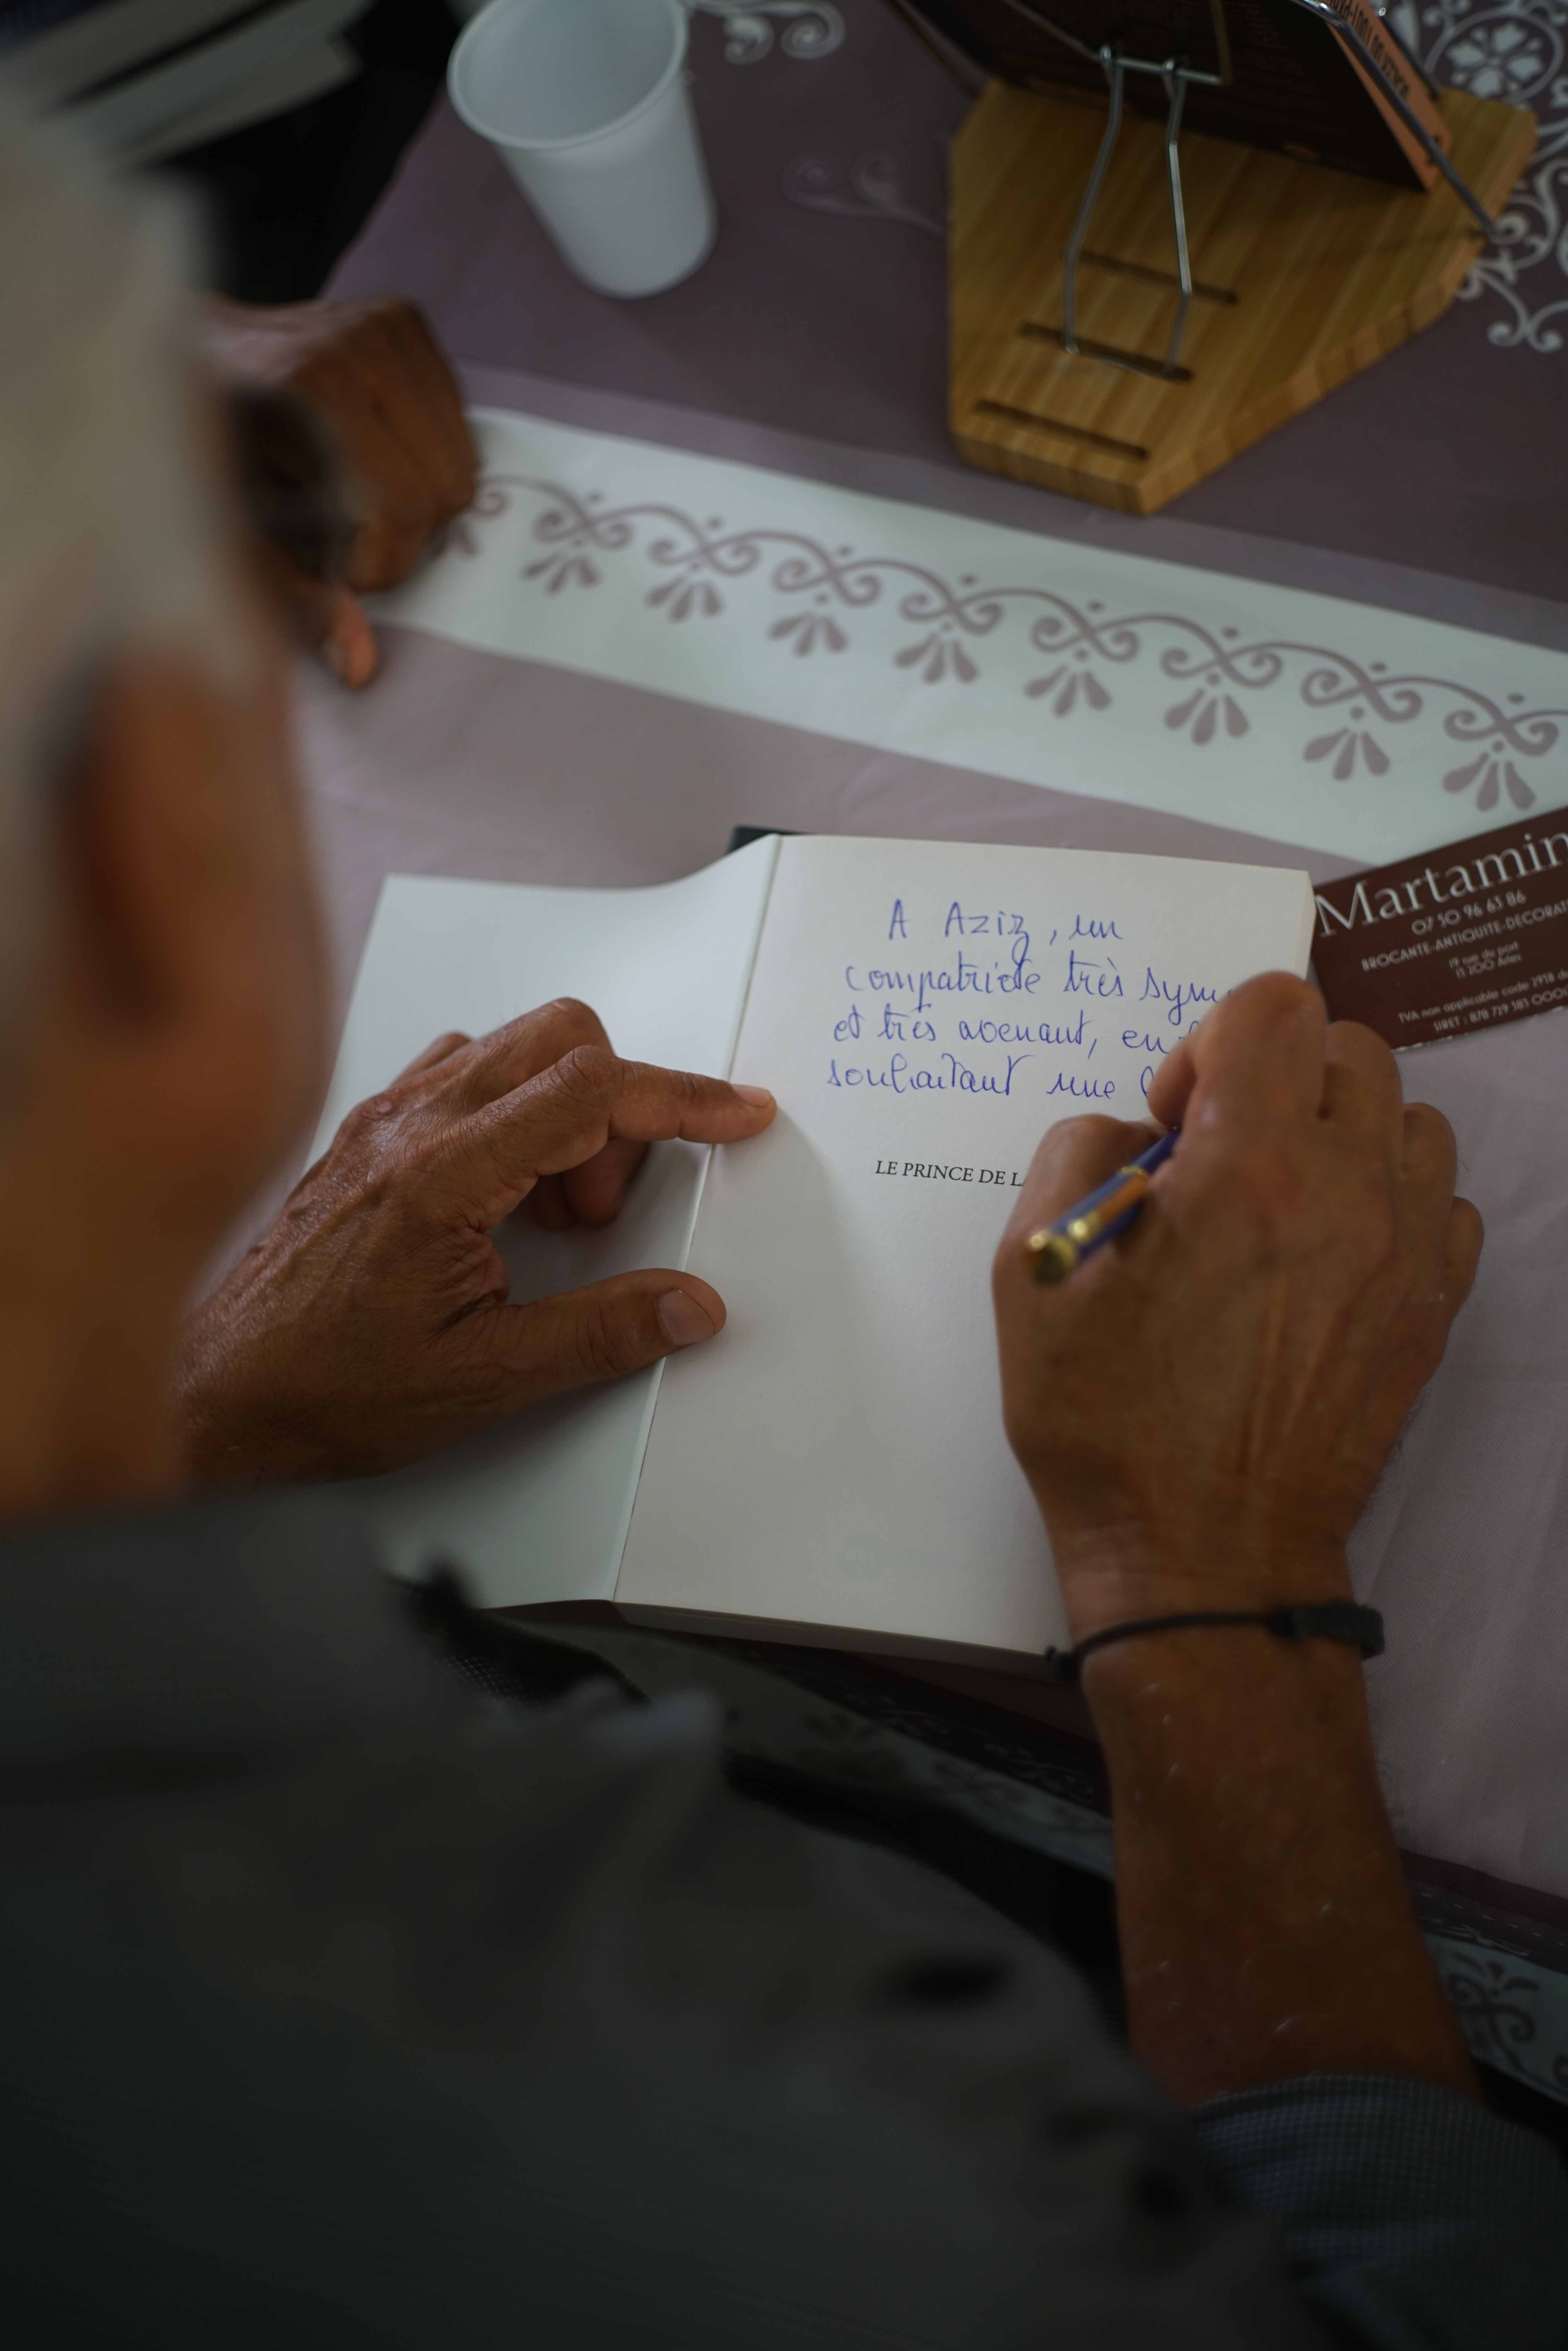 A Aziz, un
compatriote très sym
et très avenant, en
souhaitant une
LE PRINCE DE LA
Martamin
07 50 96 63 86
BROCANTE-ANTIQUITE-DECORAT
19 rue du port
13 200 Arles
TVA non applicable code 293B
SIRET : 878 729 583 000